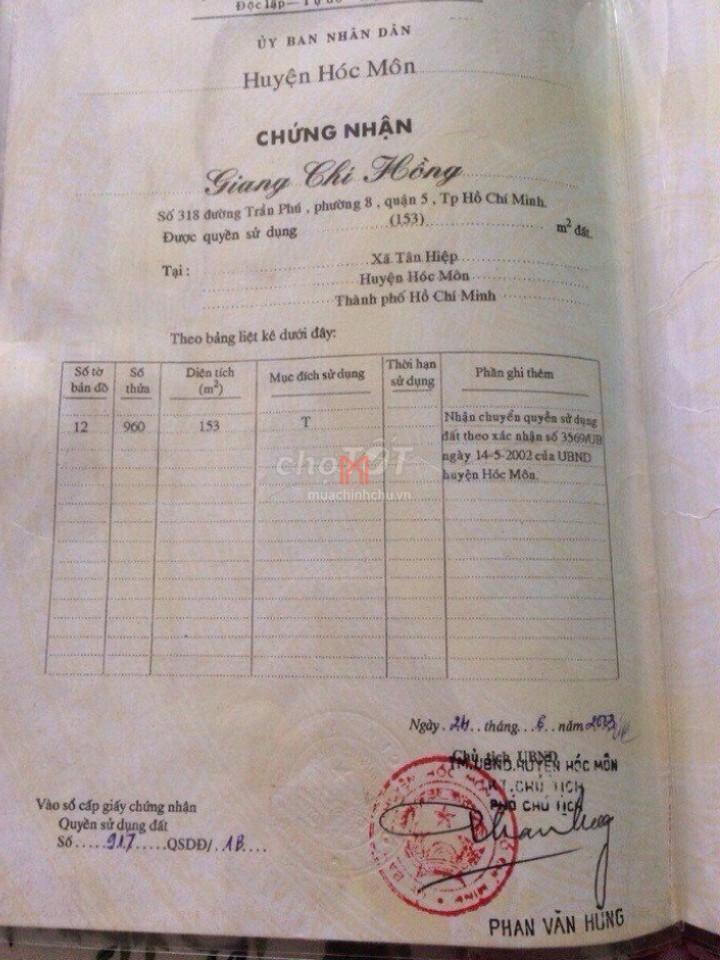 Độc lập — Tự do
ỦY BAN NHÂN DÂN
Huyện Hóc Môn
CHỨNG NHẬN
Giang Chi Hồng
Số 318 đường Trần Phú , phường 8 , quận 5 , Tp Hồ Chí Minh.
Được quyền sử dụng (153) m² đất.
Tại : Xã Tân Hiệp
Huyện Hóc Môn
Thành phố Hồ Chí Minh
Theo bảng liệt kê dưới đây:
Số tờ bản đồ Số thửa Diện tích (m²) Mục đích sử dụng Thời hạn sử dụng Phần ghi thêm
12 960 153 T Nhận chuyển quyền sử dụng
đất theo xác nhận số 3569/UB
ngày 14-5-2002 của UBND
huyện Hóc Môn.
choTỐT
muachinhchu.vn
Ngày 24 tháng 6 năm 2003
Chủ tịch UBND
TM.UBND.HUYỆN HÓC MÔN
KT.CHỦ TỊCH
PHÓ CHỦ TỊCH
Vào sổ cấp giấy chứng nhận
Quyền sử dụng đất
Số 917 QSDĐ/ 1B
PHAN VĂN HÙNG